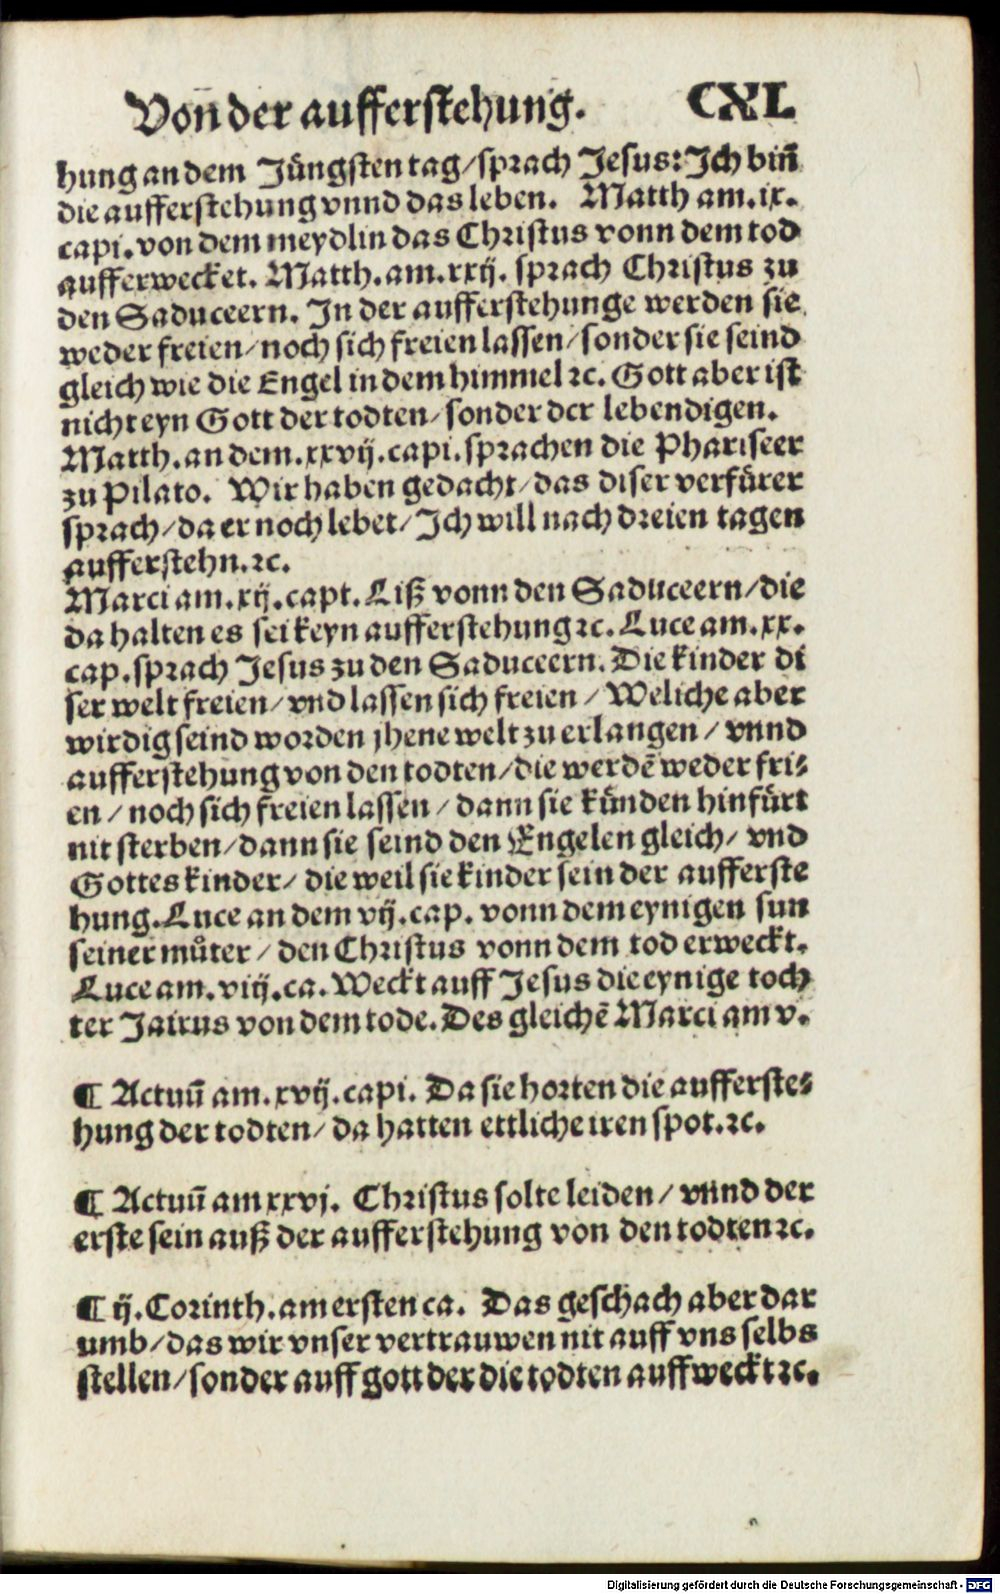 Von̄ der aufferstehung. CXL
hung an dem Jüngsten tag/sprach Jesus: Ich bin̄
die aufferstehung vnnd das leben. Matth am.ix.
capi. von dem meydlin das Christus vonn dem tod
aufferwecket. Matth. am.xxij. sprach Christus zu
den Saduceern. In der aufferstehunge werden sie
weder freien/noch sich freien lassen/sonder sie seind
gleich wie die Engel in dem himmel ꝛc. Gott aber ist
nicht eyn Gott der todten/sonder der lebendigen.
Matth. an dem.xxvij.capi. sprachen die Phariseer
zu Pilato. Wir haben gedacht/das diser verfürer
sprach/da er noch lebet/Ich will nach dreien tagen
aufferstehn.ꝛc.
Marci am.xij.capt. Liß vonn den Saduceern/die
da halten es sei keyn aufferstehung ꝛc. Luce am.xx.
cap. sprach Jesus zu den Saduceern. Die kinder di
ser welt freien/vnd lassen sich freien/Weliche aber
wirdig seind worden jhene welt zu erlangen/vnnd
aufferstehung von den todten/die werdē weder fri⸗
en/noch sich freien lassen/dann sie künden hinfürt
nit sterben/dann sie seind den Engelen gleich/vnd
Gottes kinder/die weil sie kinder sein der aufferste
hung. Luce an dem vij.cap. vonn dem eynigen sun
seiner můter/den Christus vonn dem tod erweckt.
Luce am.viij.ca. Weckt auff Jesus die eynige toch
ter Jairus von dem tode. Des gleichē Marci am v.
¶ Actuū am.xvij.capi. Da sie horten die aufferste⸗
hung der todten/da hatten ettliche iren spot.ꝛc.
¶ Actuū am xxvj. Christus solte leiden/vnnd der
erste sein auß der aufferstehung von den todten ꝛc.
¶ ij. Corinth. am ersten ca. Das geschach aber dar
umb/das wir vnser vertrauwen nit auff vns selbs
stellen/sonder auff gott der die todten auffweckt ꝛc.
Digitalisierung gefördert durch die Deutsche Forschungsgemeinschaft - DFG